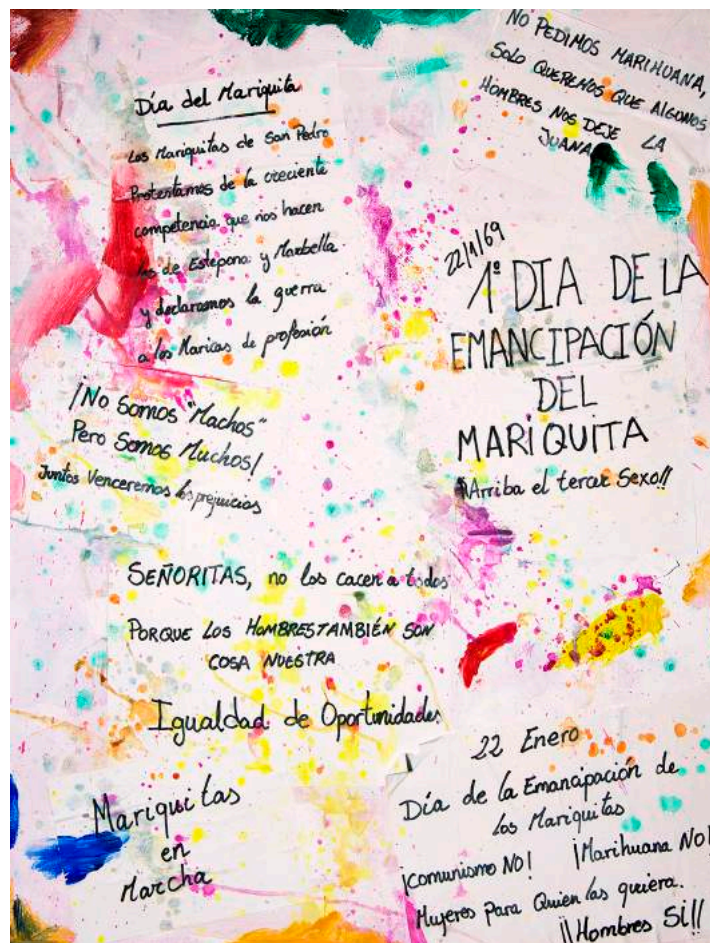 Día del Mariquita
Los Mariquitas de San Pedro
Protestamos de la creciente
competencia que nos hacen
los de Estepona y Marbella
y declaramos la guerra
a los Maricas de profesión
NO PEDIMOS MARIHUANA,
SOLO QUEREMOS QUE ALGUNOS
HOMBRES NOS DEJE LA
JUANA
22/1/69
1º DIA DE LA
EMANCIPACIÓN
DEL
MARIQUITA
¡¡Arriba el tercer Sexo!!
¡No Somos "Machos"
Pero Somos Muchos!
Juntos Venceremos los prejuicios
SEÑORITAS, no los cacen a todos
PORQUE LOS HOMBRES TAMBIÉN SON
COSA NUESTRA
Igualdad de Oportunidades
Mariquitas
en
Marcha
22 Enero
Día de la Emancipación de
los Mariquitas
¡Comunismo NO! ¡Marihuana NO!
Mujeres Para Quien las quiera.
¡¡Hombres SI!!